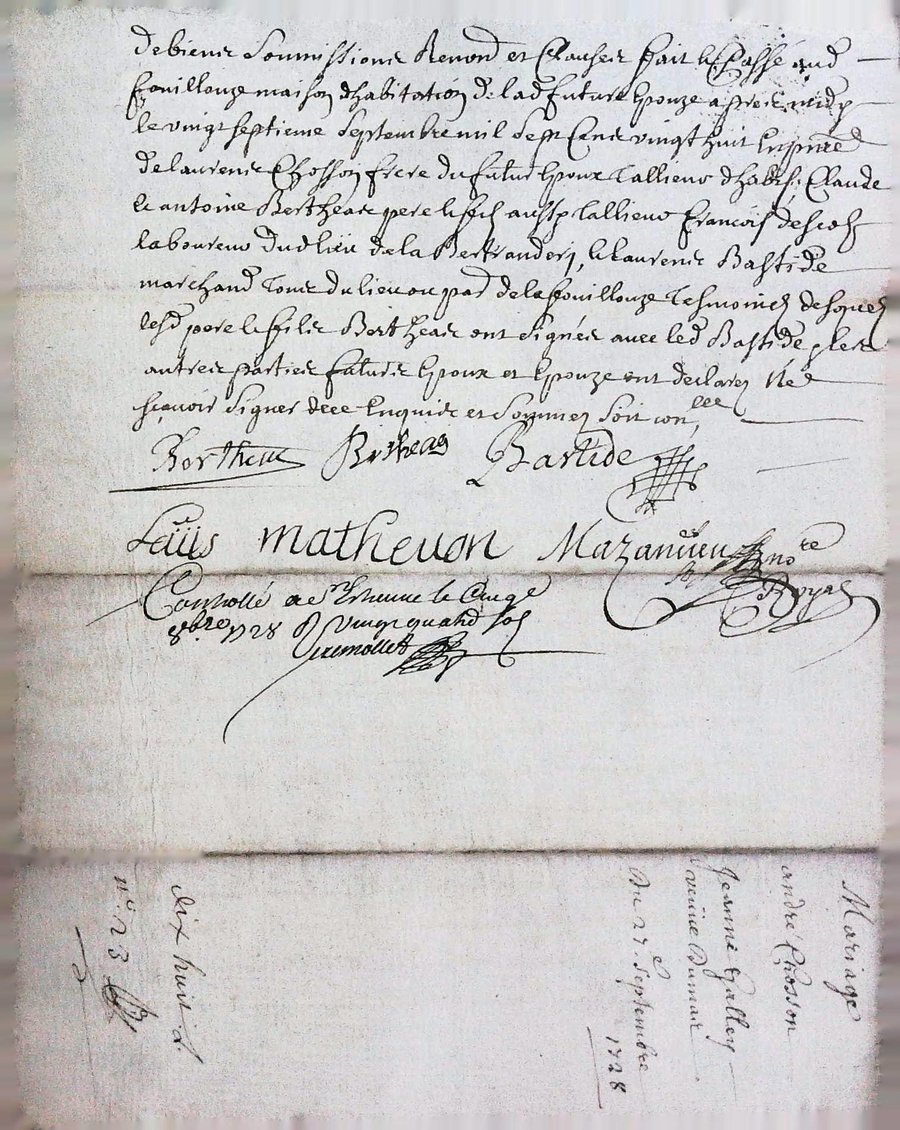 debiens Soumissions Renond et Clauses fait & Passé aud
fouillouze maison dhabitation de lad future Epouze apres midy
le vingt septieme Septembre mil Sept Cens vingt huit En pnce
de laurens Chosson frere du futur Epoux Tallieur dhabits, Claude
& antoine Bertheas pere & fils aussy Tallieur francois descos
laboureur dud lieu de la Bertranderj, & Laurens Bastide
marchand Tous du lieu ou par de la fouillouze Tesmoins desquels
lesd pere & fils Bertheas ont signés avec led Bastide & les
autres parties futurs Epoux et Epouze ont declarez Ne
sçavoir Signer de ce Enquis et Sommez Soit con
Bertheas Bertheas Bastide
Louis mathevon Mazanieu nore
Royal
Controllé a St Etienne le Cinqe
8bre 1728 R vingt quatre sols
Mariage
andré Chosson
Jeanne Galley
veuve Dumas
Du 27 Septembre
1728
dix huit d.
no 23